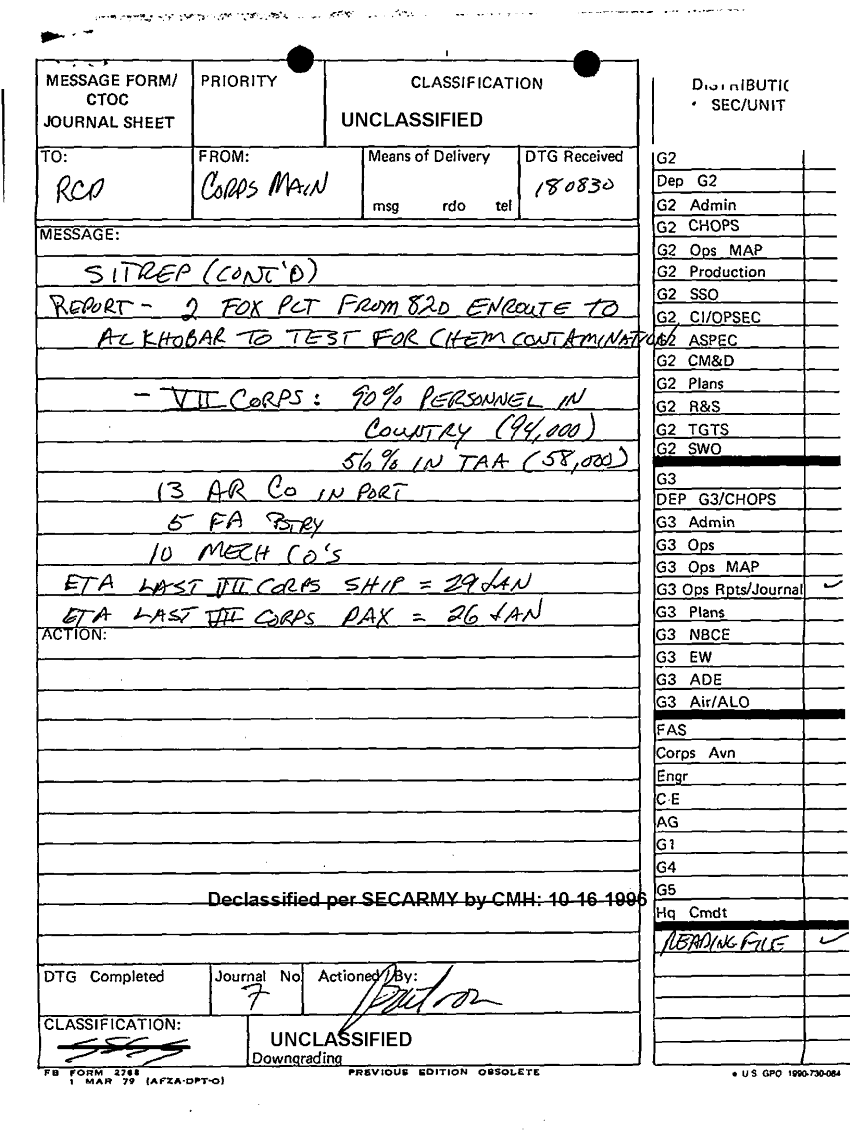 MESSAGE FORM/
CTOC
JOURNAL SHEET
PRIORITY
CLASSIFICATION
UNCLASSIFIED
TO:
RCP
FROM:
CORPS MAIN
Means of Delivery
msg rdo tel
DTG Received
180830
MESSAGE:
SITREP (CONT'D)
REPORT - 2 FOX PLT FROM 82D ENROUTE TO
AL KHOBAR TO TEST FOR CHEM CONTAMINATION
- VII CORPS: 90% PERSONNEL IN
COUNTRY (94,000)
56% IN TAA (58,000)
13 AR CO IN PORT
5 FA BTRY
10 MECH CO'S
ETA LAST VII CORPS SHIP = 29 JAN
ETA LAST VII CORPS PAX = 26 JAN
ACTION:
Declassified per SECARMY by CMH: 10-16-1996
DTG Completed
Journal No
7
Actioned By:
CLASSIFICATION:
UNCLASSIFIED
Downgrading
FB FORM 2768
1 MAR 79 (AFZA-DPT-O)
PREVIOUS EDITION OBSOLETE
SEC/UNIT
G2
Dep G2
G2 Admin
G2 CHOPS
G2 Ops MAP
G2 Production
G2 SSO
G2 CI/OPSEC
G2 ASPEC
G2 CM&D
G2 Plans
G2 R&S
G2 TGTS
G2 SWO
G3
DEP G3/CHOPS
G3 Admin
G3 Ops
G3 Ops MAP
G3 Ops Rpts/Journal
G3 Plans
G3 NBCE
G3 EW
G3 ADE
G3 Air/ALO
FAS
Corps Avn
Engr
C-E
AG
G1
G4
G5
Hq Cmdt
READING FILE
U S GPO 1990-730-084